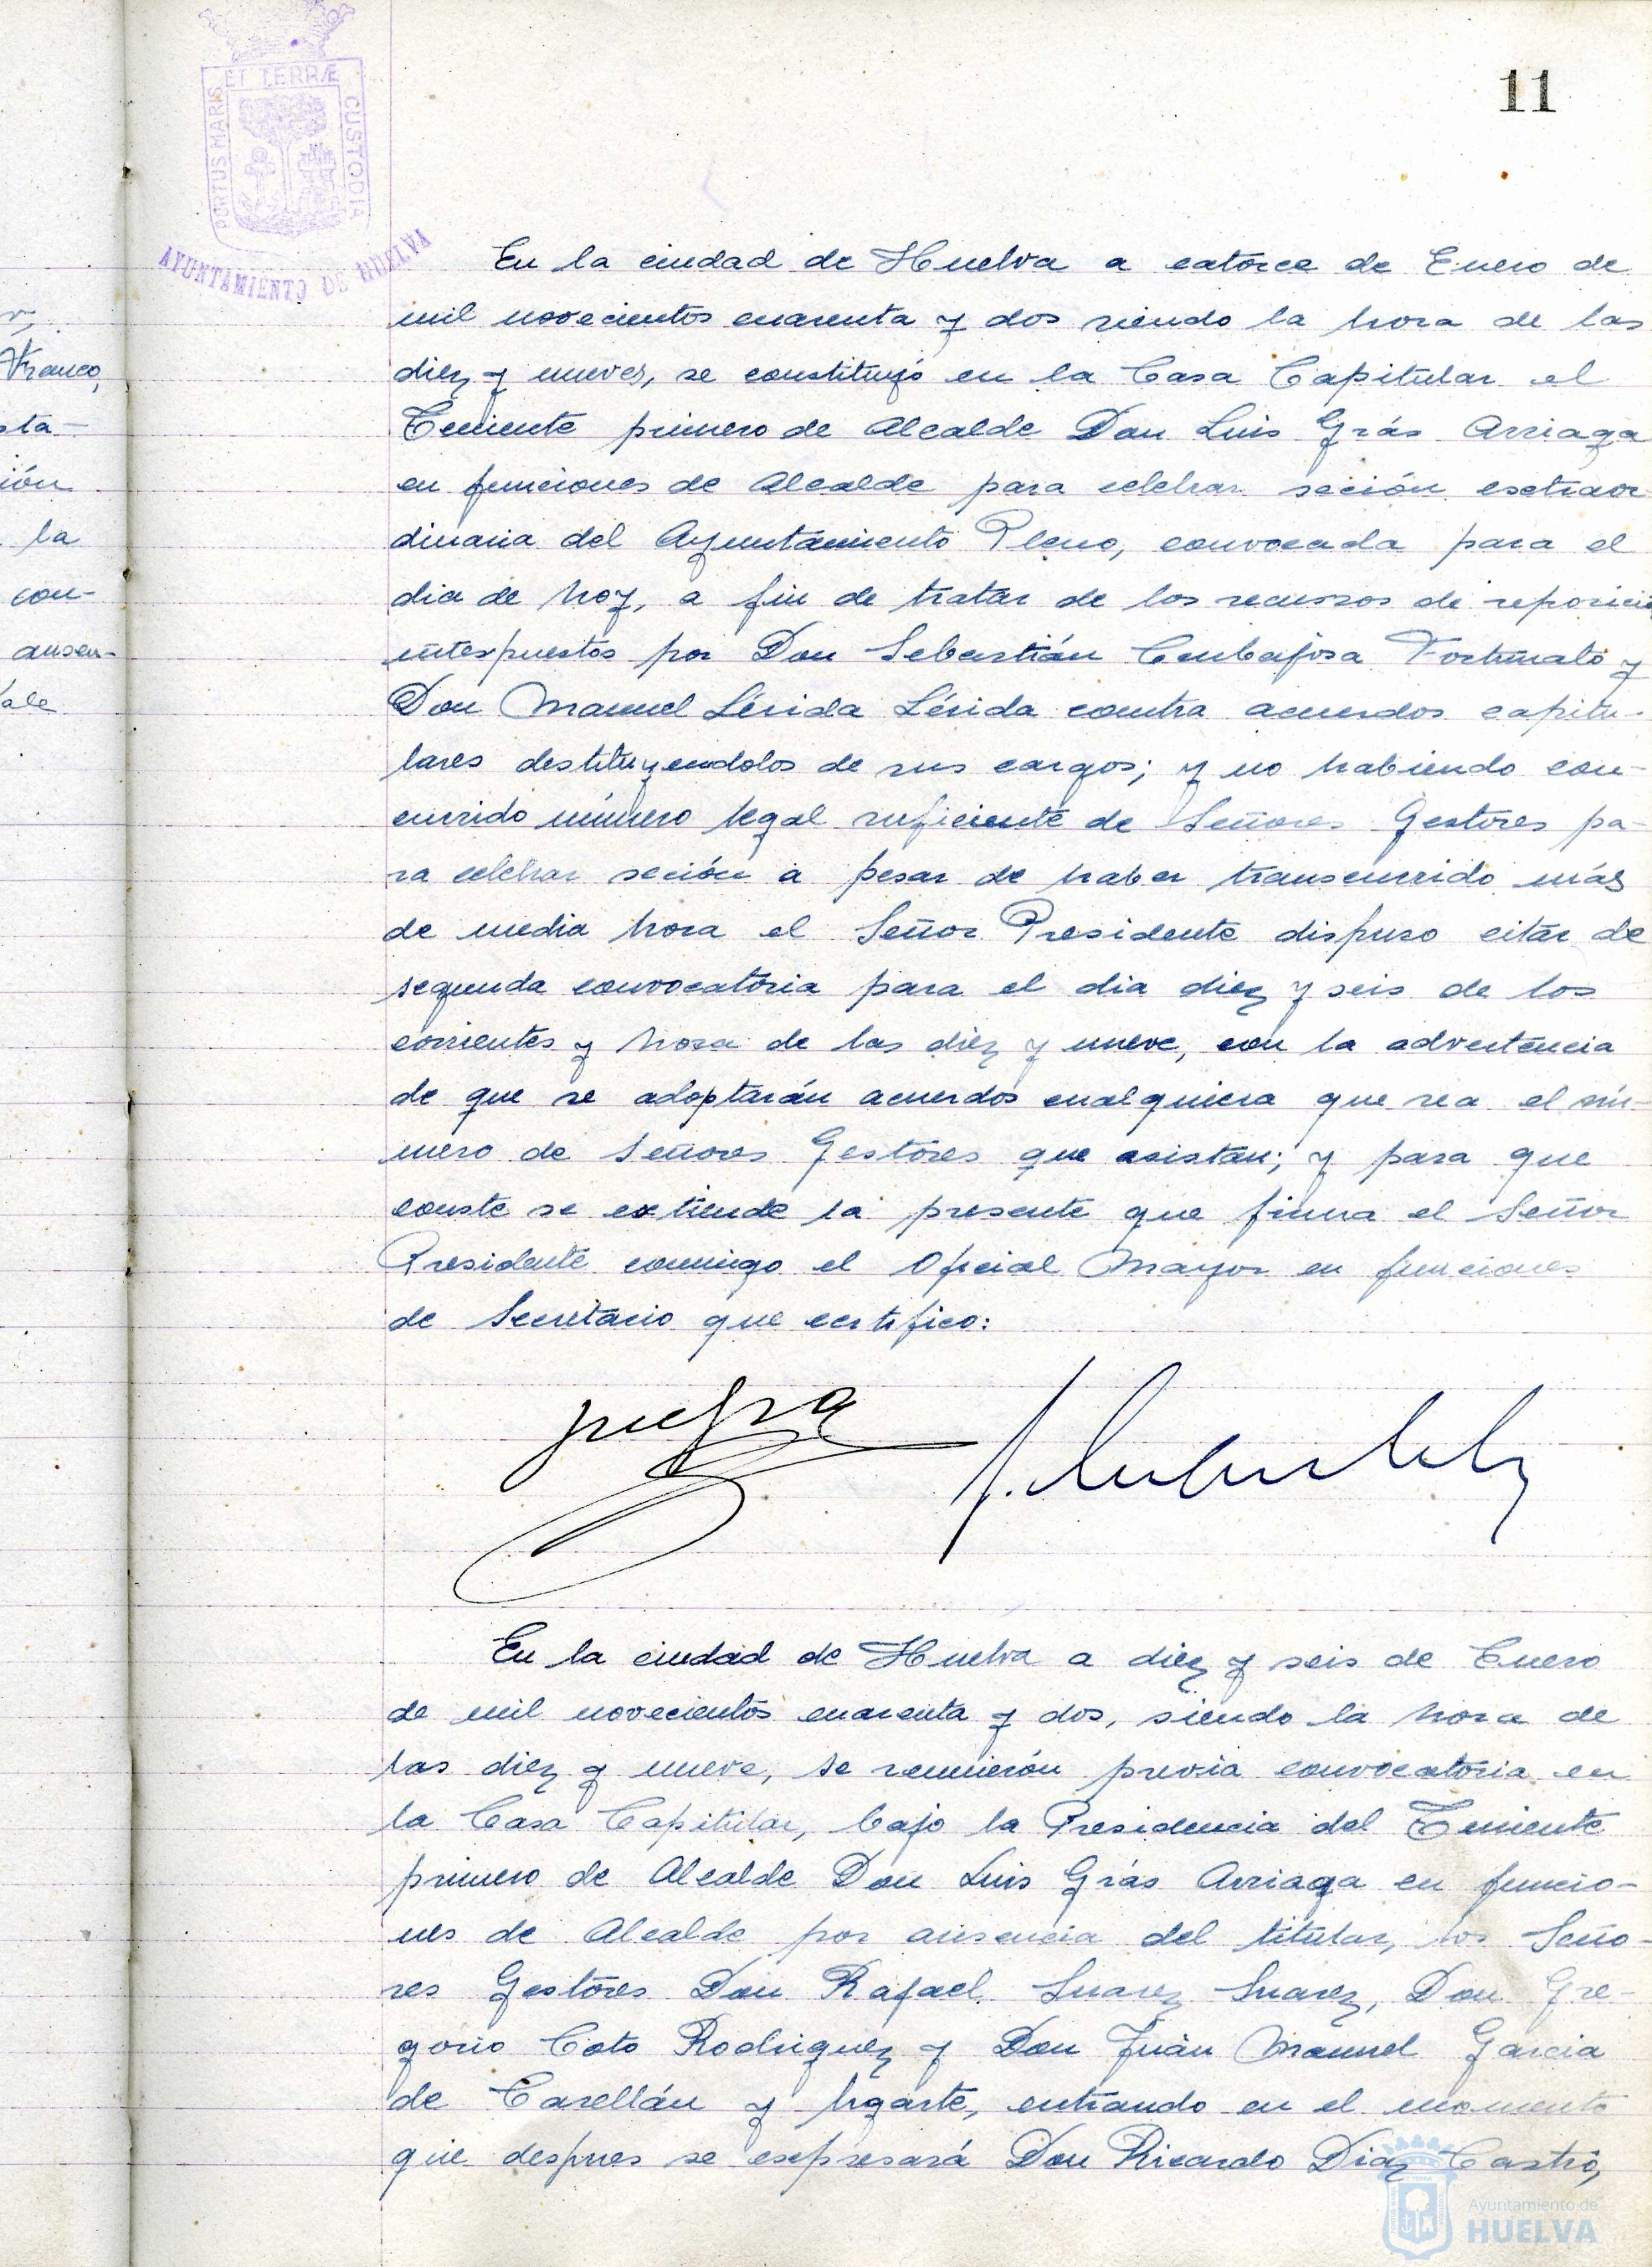 11
PORTUS MARIS
ET TERRÆ
CUSTODIA
AYUNTAMIENTO DE HUELVA
Franco,
sta-
ión
la
con-
ausen-
En la ciudad de Huelva a catorce de Enero de
mil novecientos cuarenta y dos siendo la hora de las
diez y nueves, se constituyó en la Casa Capitular el
Teniente primero de Alcalde Don Luis Grás Arriaga
en funciones de Alcalde para celebrar seción esctraor-
dinaria del Ayuntamiento Pleno, convocada para el
dia de hoy, a fin de tratar de los recursos de reposició
interpuestos por Don Sebastián Fortunato y
Don Manuel Lérida Lérida contra acuerdos capitu-
lares destituyendolos de sus cargos; y no habiendo con-
currido número legal suficiente de Señores Gestores pa-
ra celebrar seción a pesar de haber transcurrido más
de media hora el Señor Presidente dispuso citar de
segunda convocatoria para el dia diez y seis de los
corrientes y hora de las diez y nueve, con la advertencia
de que se adoptarán acuerdos cualquiera que sea el nú-
mero de Señores Gestores que asistan; y para que
conste se extiende la presente que firma el Señor
Presidente conmigo el Oficial Mayor en funciones
de Secretario que certifico:
En la ciudad de Huelva a diez y seis de Enero
de mil novecientos cuarenta y dos, siendo la hora de
las diez y nueve, se reunierón previa convocatoria en
la Casa Capitular, bajo la Presidencia del Teniente
primero de Alcalde Don Luis Grás Arriaga en funcio-
nes de Alcalde por ausencia del titular, los Seño-
res Gestores Don Rafael Suarez Suarez, Don Gre-
gorio Coto Rodriguez y Don Juan Manuel Garcia
de y Ugarte, entrando en el momento
que despues se escpresará Don Ricardo Diaz Castro,
Ayuntamiento de
HUELVA